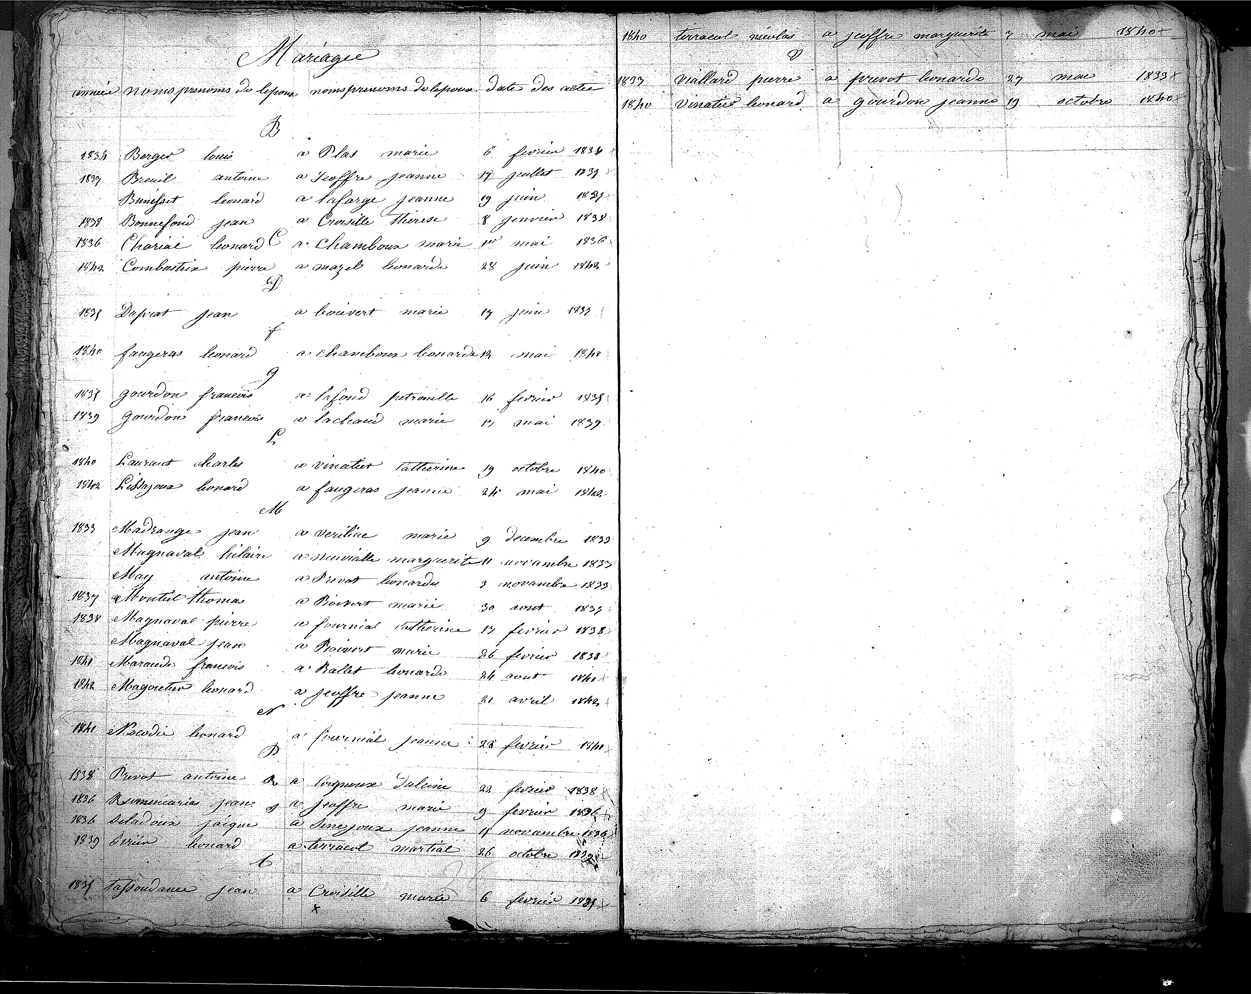 Mariages
année noms prenoms de lepoux noms prenoms de lepouse date des actes
B
1834 Berger louis a Plas marie 6 fevrier 1834
1839 Breuil antoine a Jeoffre jeanne 17 juillet 1839
leonard a lafarge jeanne 19 juin 1839
1838 Bonnefond jean a Croisille therese 8 janvier 1838
C
1836 leonard a Chamboux marie 1er mai 1836
1842 Combasteix pierre a mazel leonarde 28 juin 1842
D
1835 Duprat jean a boivert marie 17 juin 1835
f
1840 faugeras leonard a chamboux leonarde 12 mai 1840
g
1835 gourdon francois a lafond petronille 16 fevrier 1835
1839 gourdon francois a lachaud marie 13 mai 1839
L
1840 Laurant charles a vinatier Catherine 19 octobre 1840
1842 leonard a faugeras jeanne 24 mai 1842
M
1833 Madrange jean a marie 9 decembre 1833
Magnaval hilaire a neuvialle marguerite 11 novembre 1833
May antoine a Prevot leonarde 3 novembre 1833
1837 Monteil thomas a Boivert marie 30 aout 1837
1838 Magnaval pierre a fournial Catherine 13 fevrier 1838
Magnaval jean a Boivert marie 26 fevrier 1838
1841 francois a Ballet leonarde 24 aout 1841
1842 Magoutier leonard a jeoffre jeanne 21 avril 1842
N
1841 leonard a fournial jeanne 28 fevrier 1841
P
1838 Prevot antoine a 22 fevrier 1838
R
1836 jean a jeoffre marie 9 fevrier 1836
S
1836 Seladoux jacque a Senejoux jeanne 18 novembre 1836
1839 leonard a terracol martial 26 octobre 1839
t
1835 tassoudance jean a Croisille marie 6 fevrier 1835
1840 terracol nicolas a jeoffre marguerite 3 mai 1840
V
1833 Viallard pierre a prevot leonarde 27 mai 1833
1840 Vinatier leonard a gourdon jeanne 19 octobre 1840